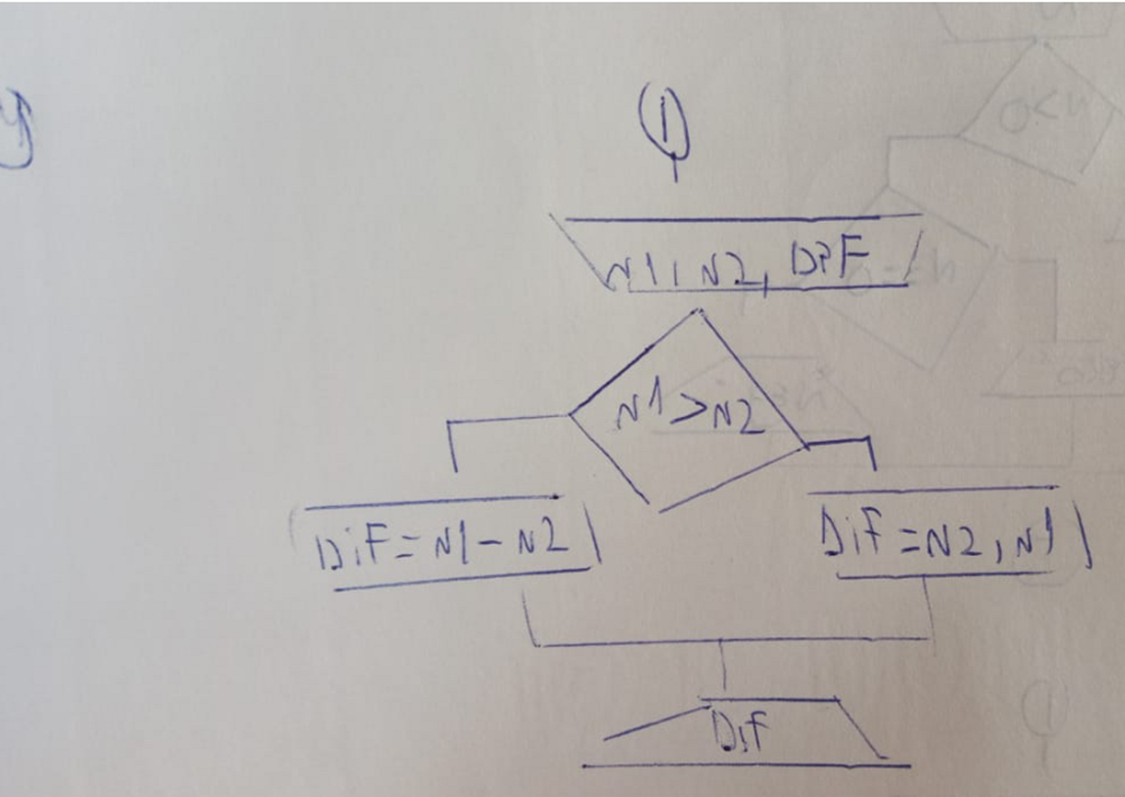 I
N1, N2, DiF
N1>N2
DiF=N1-N2
DiF=N2,N1
Dif